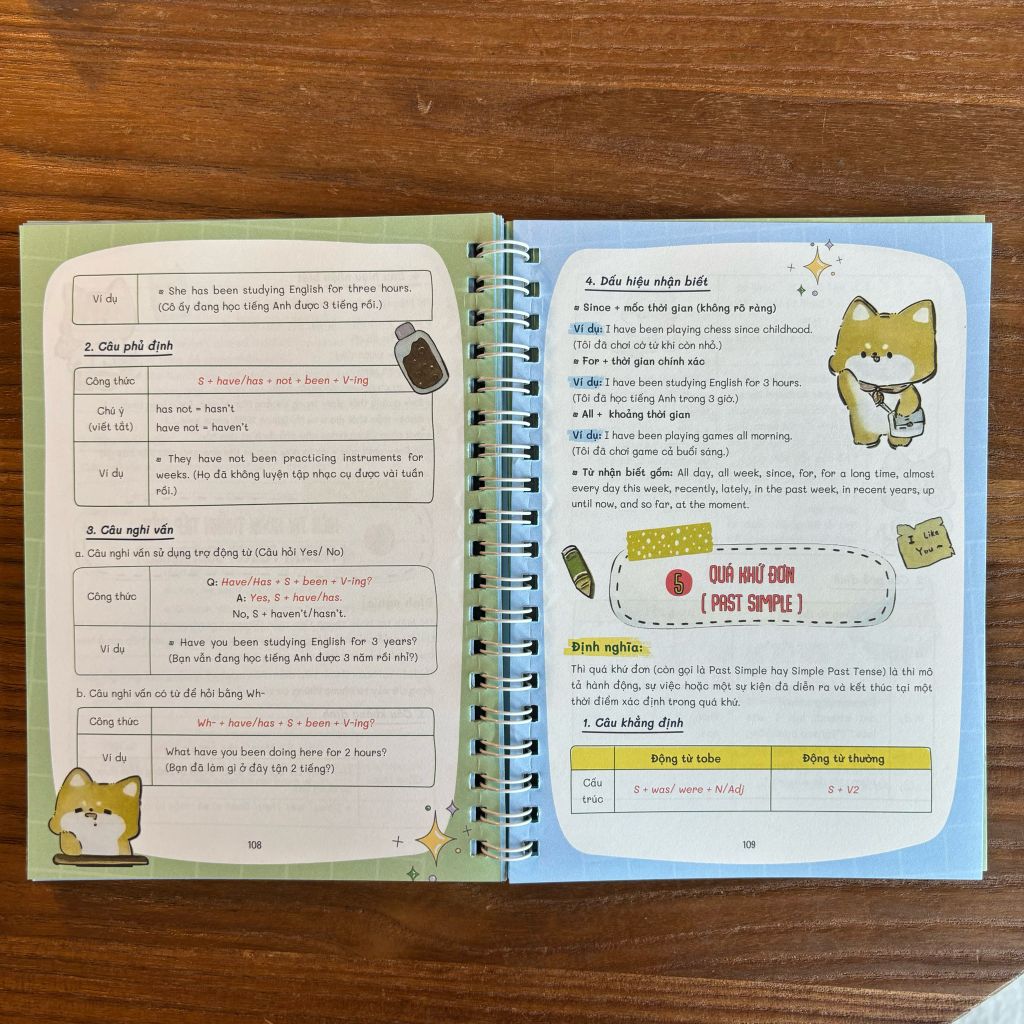 Ví dụ
▪ She has been studying English for three hours.
(Cô ấy đang học tiếng Anh được 3 tiếng rồi.)
2. Câu phủ định
Công thức
S + have/has + not + been + V-ing
Chú ý
(viết tắt)
has not = hasn't
have not = haven't
Ví dụ
▪ They have not been practicing instruments for
weeks. (Họ đã không luyện tập nhạc cụ được vài tuần
rồi.)
3. Câu nghi vấn
a. Câu nghi vấn sử dụng trợ động từ (Câu hỏi Yes/ No)
Công thức
Q: Have/Has + S + been + V-ing?
A: Yes, S + have/has.
No, S + haven't/hasn't.
Ví dụ
▪ Have you been studying English for 3 years?
(Bạn vẫn đang học tiếng Anh được 3 năm rồi nhỉ?)
b. Câu nghi vấn có từ để hỏi bằng Wh-
Công thức
Wh- + have/has + S + been + V-ing?
Ví dụ
What have you been doing here for 2 hours?
(Bạn đã làm gì ở đây tận 2 tiếng?)
108
4. Dấu hiệu nhận biết
▪ Since + mốc thời gian (không rõ ràng)
Ví dụ: I have been playing chess since childhood.
(Tôi đã chơi cờ từ khi còn nhỏ.)
▪ For + thời gian chính xác
Ví dụ: I have been studying English for 3 hours.
(Tôi đã học tiếng Anh trong 3 giờ.)
▪ All + khoảng thời gian
Ví dụ: I have been playing games all morning.
(Tôi đã chơi game cả buổi sáng.)
▪ Từ nhận biết gồm: All day, all week, since, for, for a long time, almost
every day this week, recently, lately, in the past week, in recent years, up
until now, and so far, at the moment.
I Like
You ~
5 QUÁ KHỨ ĐƠN
( PAST SIMPLE )
Định nghĩa:
Thì quá khứ đơn (còn gọi là Past Simple hay Simple Past Tense) là thì mô
tả hành động, sự việc hoặc một sự kiện đã diễn ra và kết thúc tại một
thời điểm xác định trong quá khứ.
1. Câu khẳng định
Động từ tobe
Động từ thường
Cấu
trúc
S + was/ were + N/Adj
S + V2
109